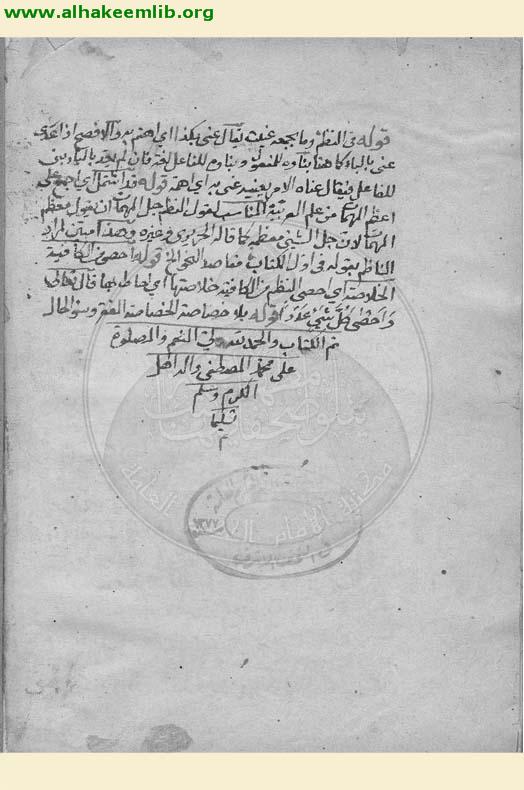 www.alhakeemlib.org
قوله في النظم وما بجمعه عنيت يقال عني بكذا اي اهتم به والافصح اذا عدي
عني بالباء كما هنا بناؤه للمفعول وبناؤه للفاعل لغة فان لم يعد بالباء بني
للفاعل فيقال عناه الامر يعنيه عنى به اي اهمه قوله قد اشتمل اي اجمع على
اعظم المهمات من علم العربية المناسب لقول النظم جل المهمات ان يقول معظم
المهمات لان جل الشيء معظمه كما قاله الجوهري وغيره وبهذا مبين لمراد
الناظم بقوله في اول الكتاب مقاصد النحو الخ قوله احصى من الكافية
الخلاصة اي احصى النظم من الكافية خلاصتها اي احاط بها قال تعالى
وَاَحْصٰى كُلَّ شَيْءٍ عَدَدًا قوله بلا خصاصة الخصاصة الفقر وسوء الحال
تم الكتاب والحمد لله والصلوة
على محمد المصطفى واله
الكرم وسلم
تسليما
م